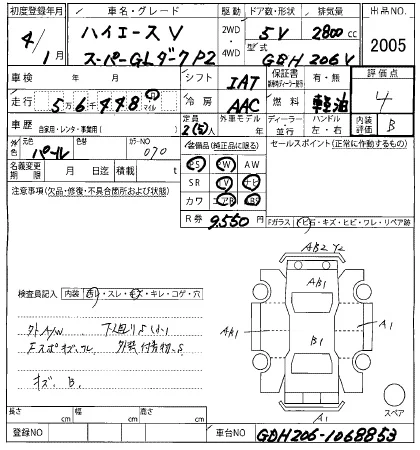 初度登録年月 車名・グレード 駆動 ドア数・形状 排気量 出品NO.
4/1月 ハイエースV 2WD 4WD 5V 2800cc 2005
スーパーGLダークP2 型式 GDH206V
車検 年 月 シフト IAT 保証書 有・無 評価点
走行 5万6千448 マイル 冷房 AAC 燃料 軽油 4
車歴 自家用・レンタ・事業用( ) 定員 2(5)人 外車モデル 年 ディーラー・並行 ハンドル 左・右 内装評価 B
外色 元色 パール 色替 カラーNO 070 装備品(純正品に限る) セールスポイント(正常に作動するもの)
名義変更期限 月 日迄 積載 t PS PW AW
注意事項(欠品・修復・不具合箇所および状態) SR TV ナビ
カワ エアB ABS
R券 9,550円 Fガラス(トビ石・キズ・ヒビ・ワレ・リペア跡)
AB2 Y2
検査員記入 内装 汚レ・スレ・キズ・キレ・コゲ・穴 AB1
外A/W 下回りS(小) AB1 B1 A1
Fスポキズ、ワレ 外装付着物、S
キズ、B.
スペア
長さ cm 幅 cm 高さ cm A1
登録NO 車台NO GDH206-1068853